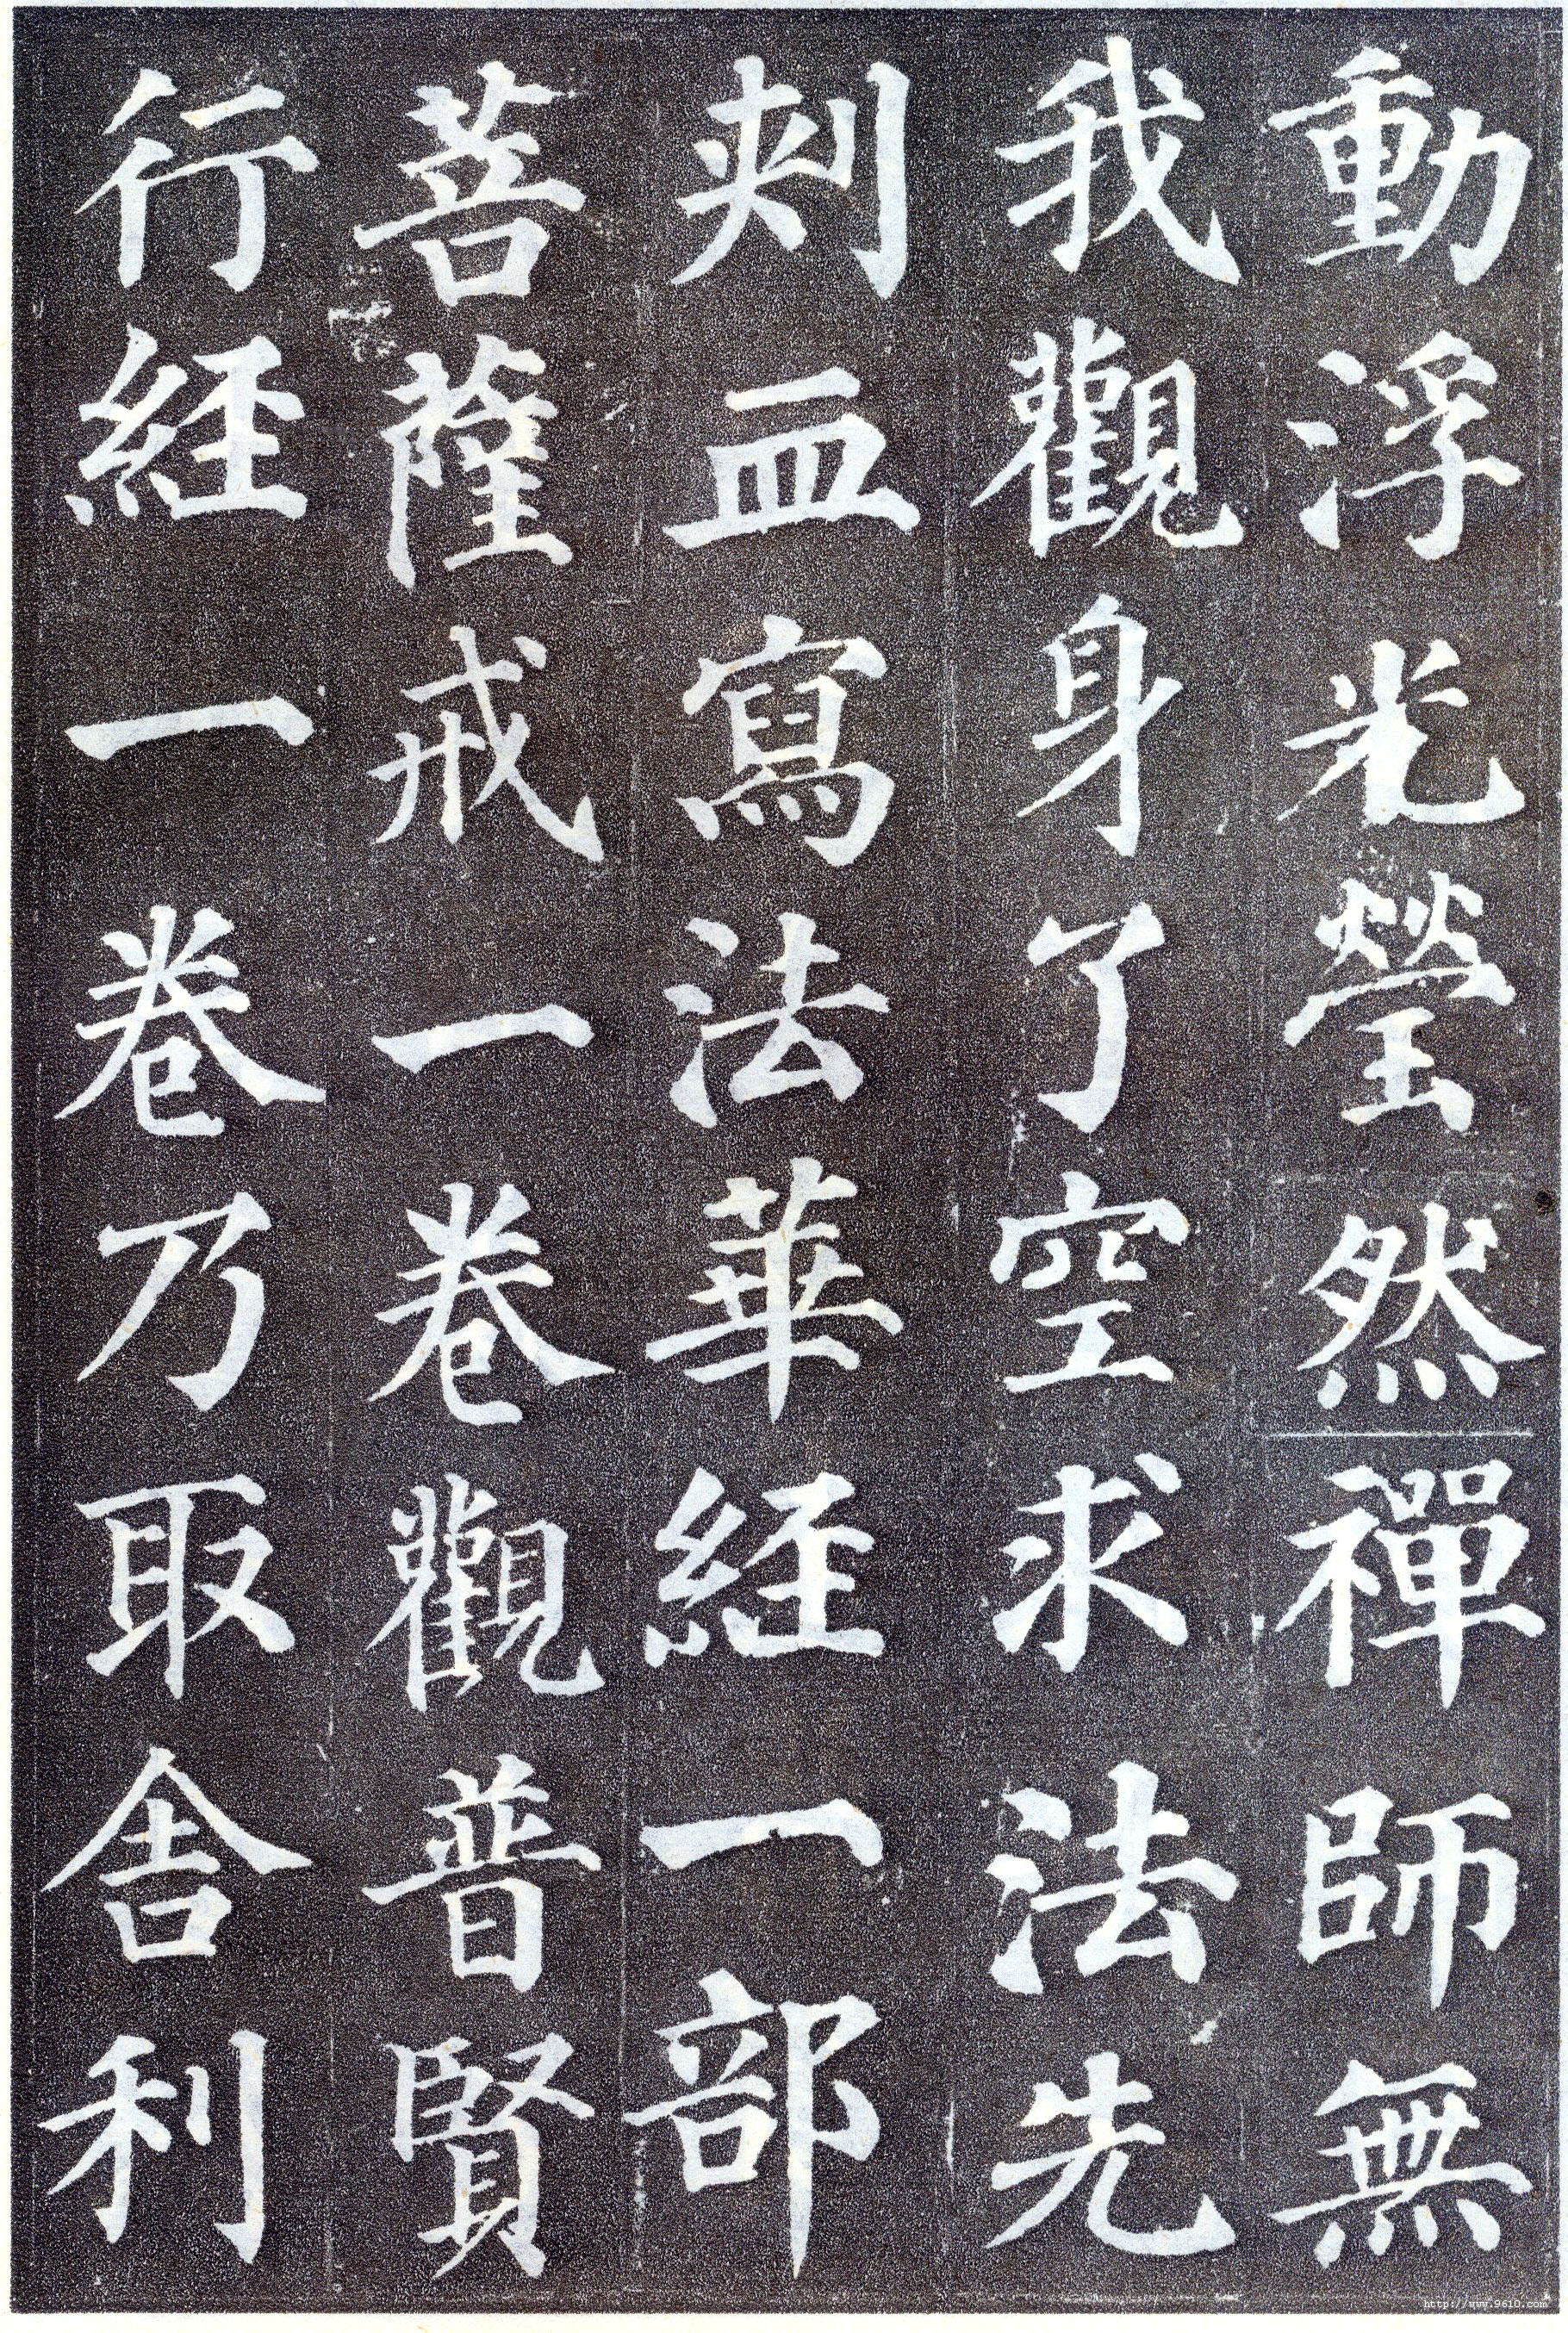 動浮光瑩然禪師無
我觀身了空求法先
刾血寫法華経一部
菩薩戒一卷觀普賢
行経一卷乃取舍利
http://www.9610.com